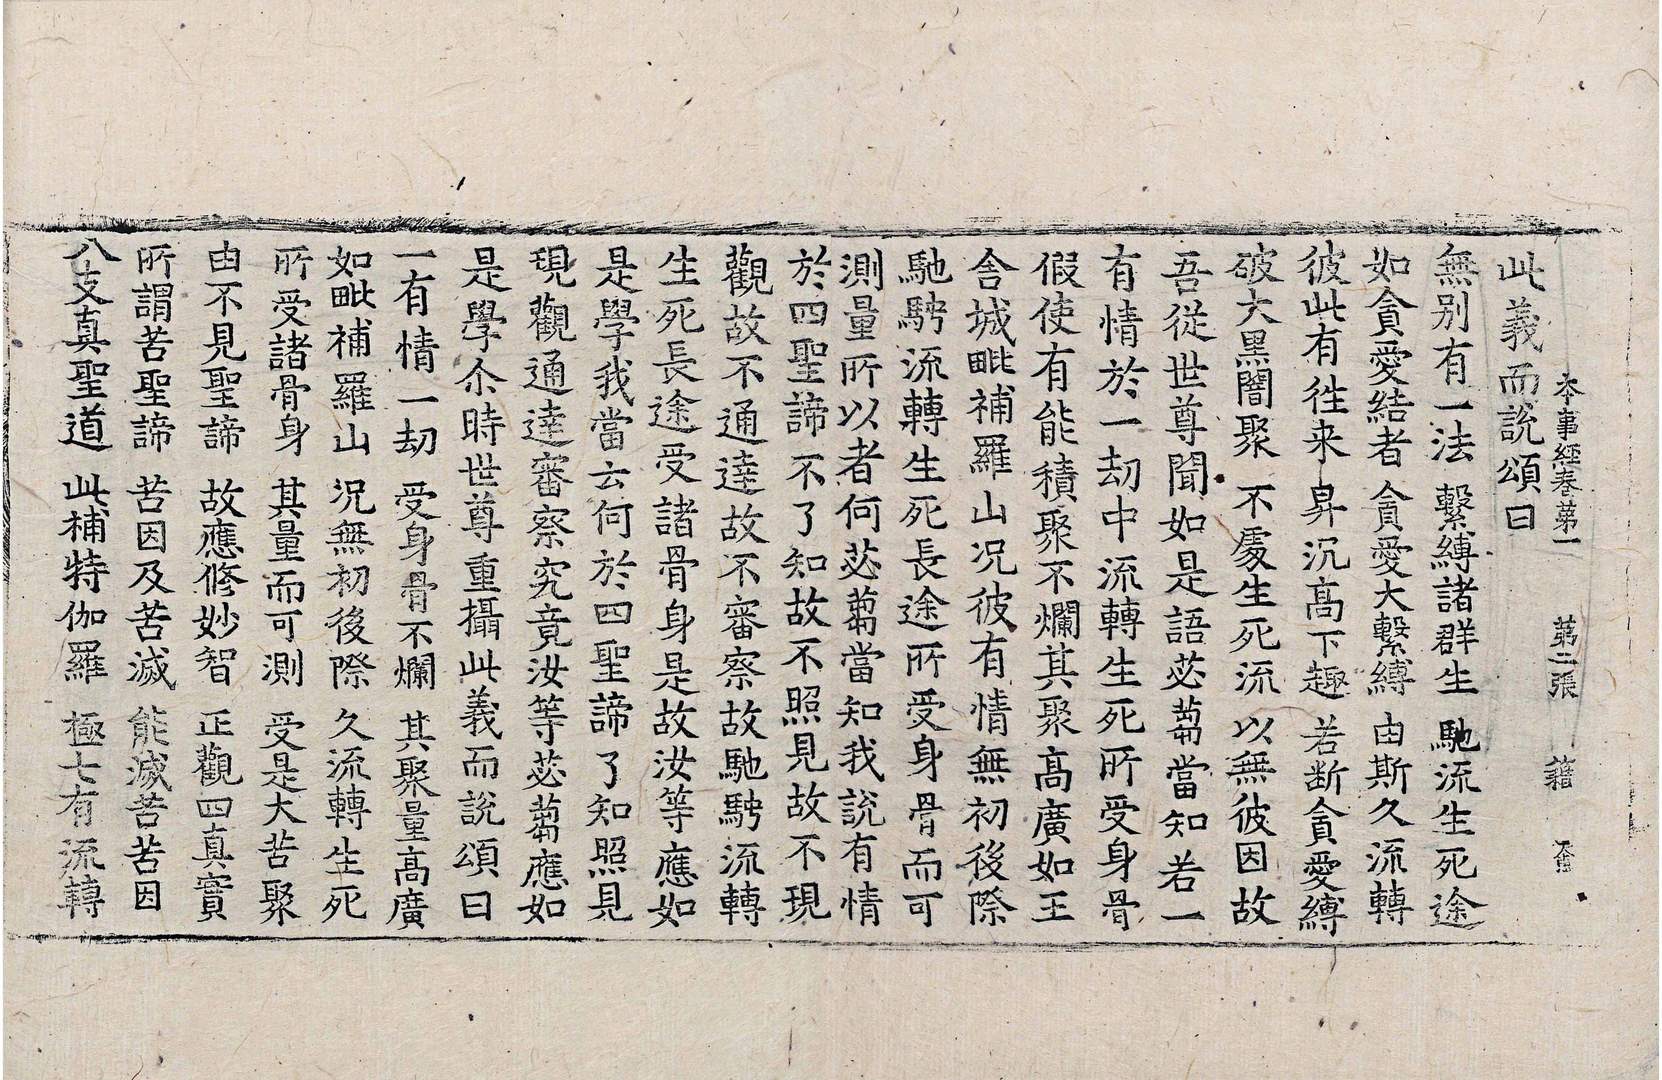 本事經卷第一 第二張 籍
此義而說頌曰
無別有一法 繫縛諸群生 馳流生死途
如貪愛結者 貪愛大繫縛 由斯久流轉
彼此有往来 昇沉高下趣 若断貪愛縛
破大黑闇聚 不處生死流 以無彼因故
吾從世尊聞如是語苾蒭當知若一
有情於一劫中流轉生死所受身骨
假使有能積聚不爛其聚高廣如王
舎城毗補羅山况彼有情無初後際
馳騁流轉生死長途所受身骨而可
測量所以者何苾蒭當知我說有情
於四聖諦不了知故不照見故不現
觀故不通達故不審察故馳騁流轉
生死長途受諸骨身是故汝等應如
是學我當云何於四聖諦了知照見
現觀通達審察究竟汝等苾蒭應如
是學尒時世尊重攝此義而說頌曰
一有情一劫 受身骨不爛 其聚量高廣
如毗補羅山 况無初後際 久流轉生死
所受諸骨身 其量而可測 受是大苦聚
由不見聖諦 故應修妙智 正觀四真實
所謂苦聖諦 苦因及苦滅 能滅苦苦因
八支真聖道 此補特伽羅 極七有流轉